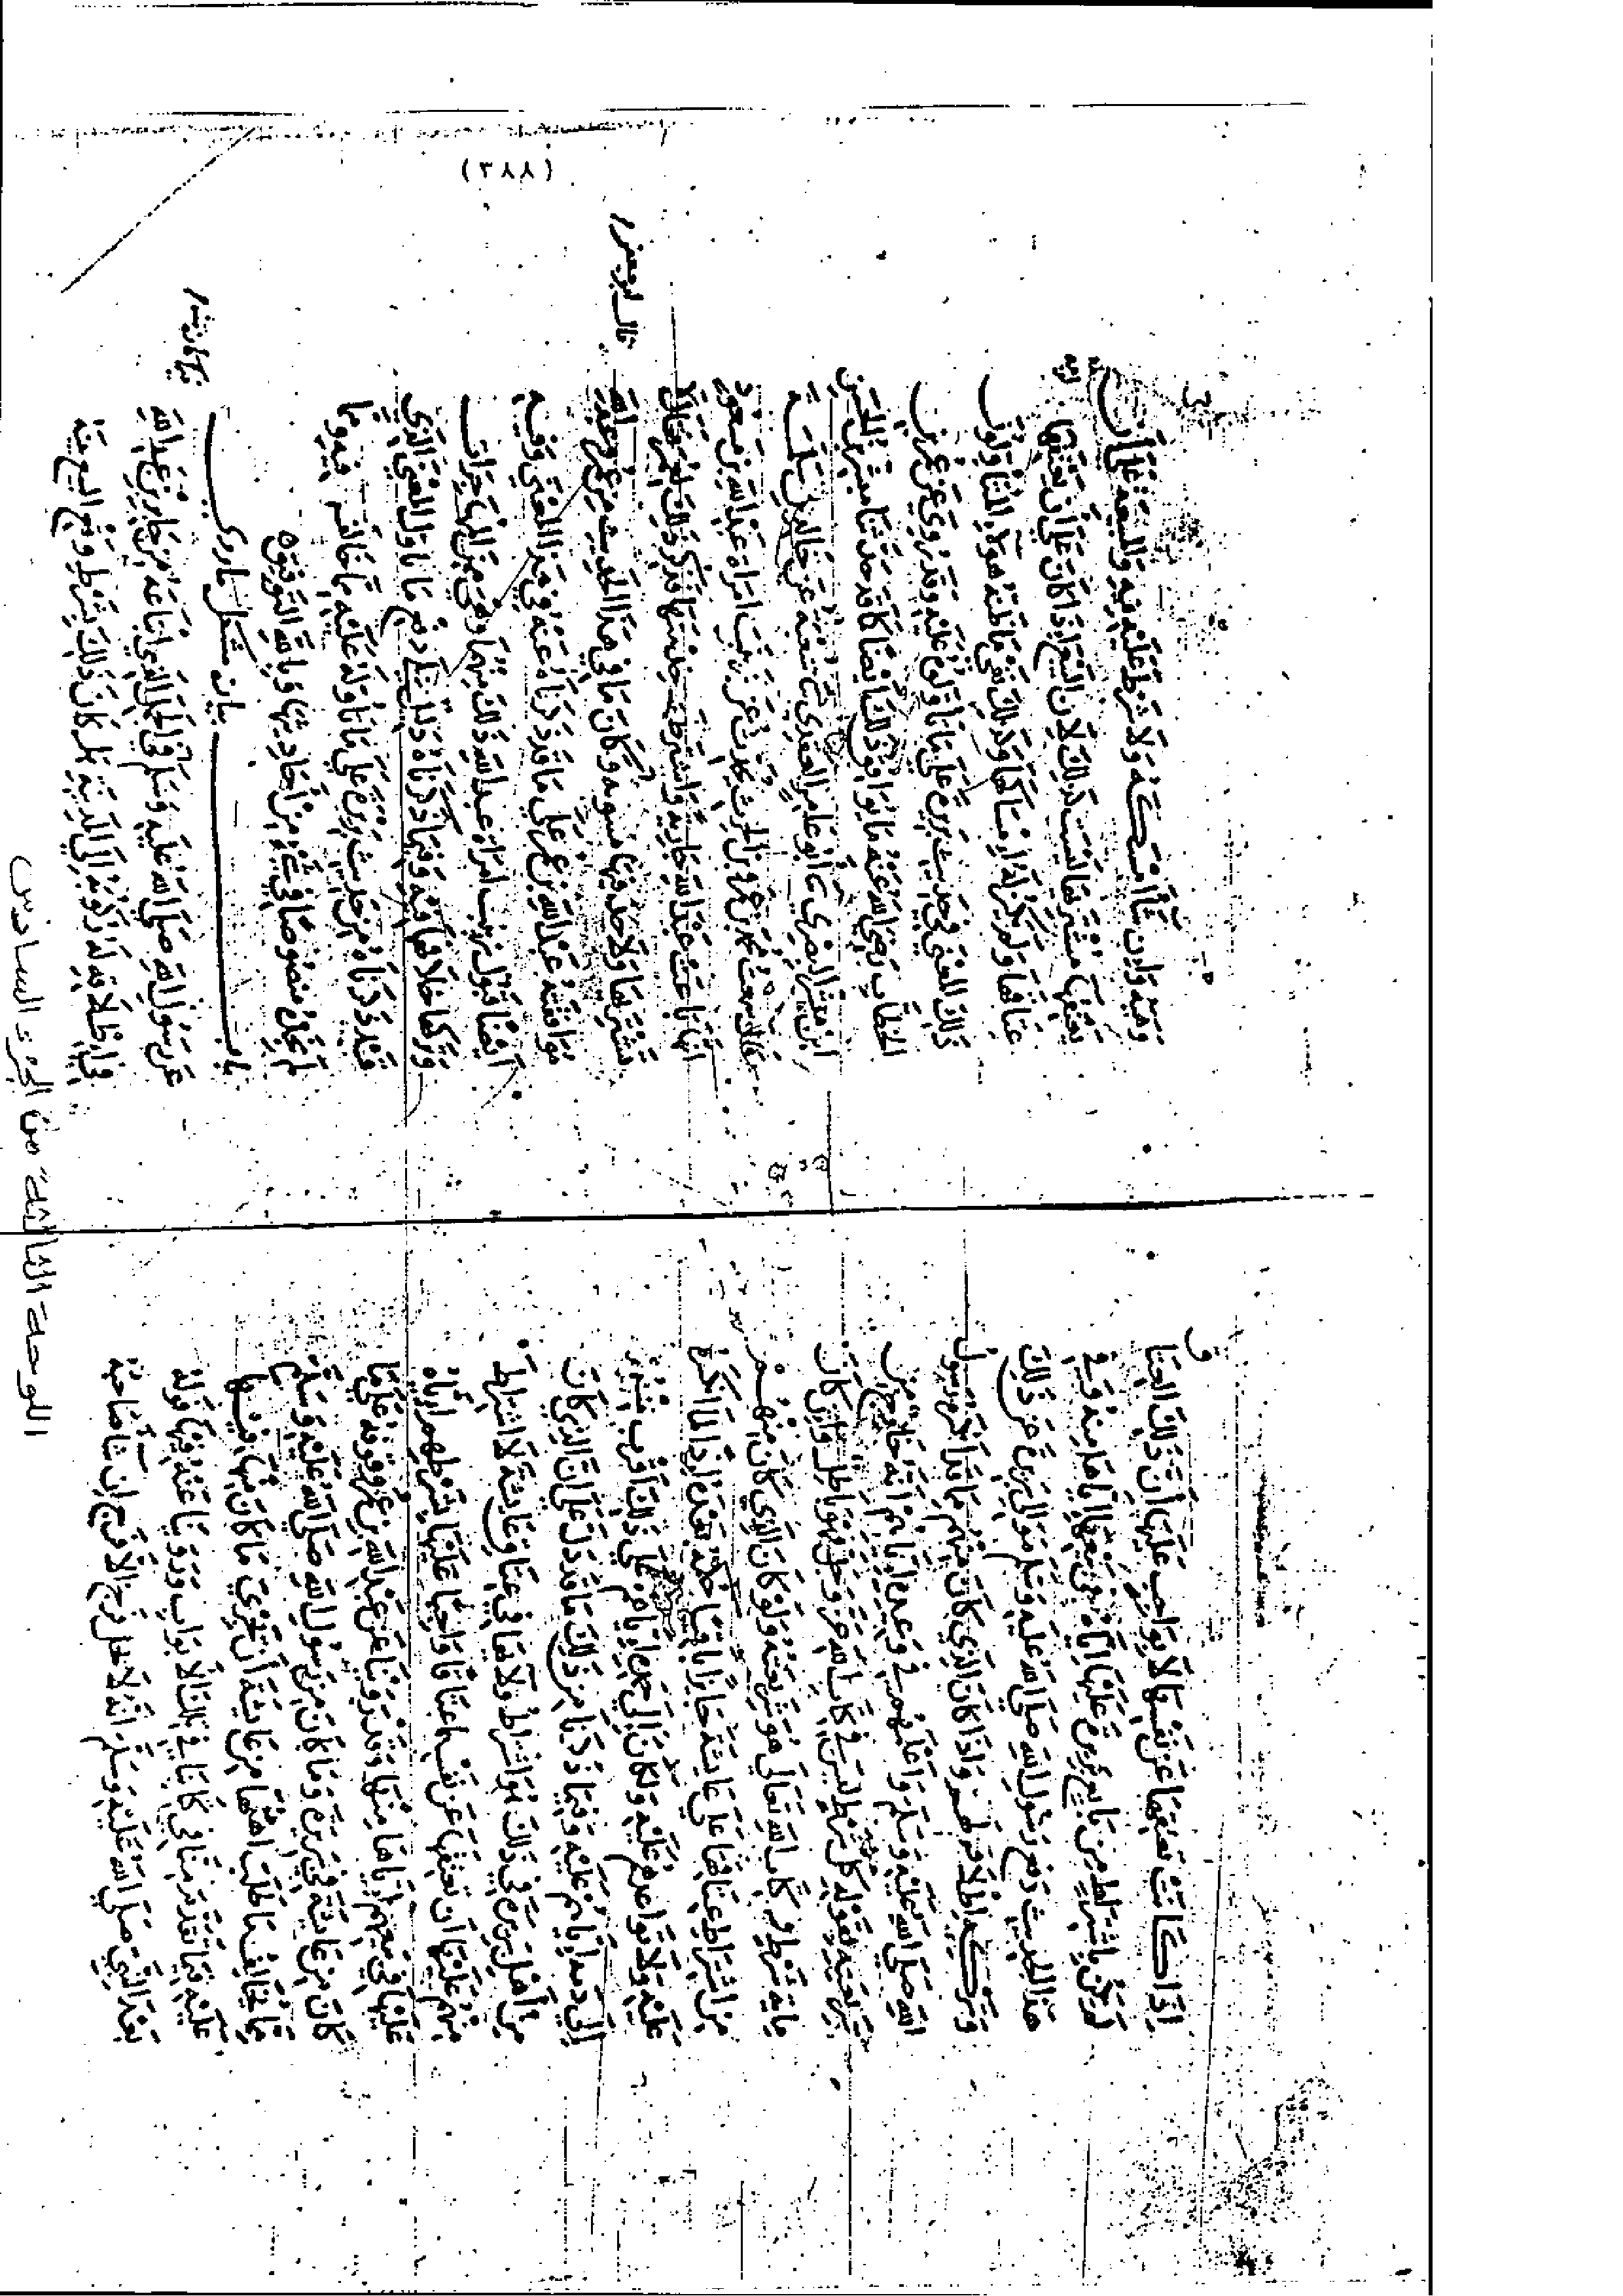 (٣٨٨)
اذا كانت تعتقها عن نفسها لا بواجب عليها ان ذلك العتا ق
لم يكن باشتراط من بايع بريرة عليها اياه في بيعها اياها منه وفي
هذا الحديث دفع رسول الله صلى الله عليه وسلم موالي بريرة عن ذلك
وتركه اطلاقه لهم واذا كان الذي كان منهم ما قد انكره رسول
الله صلى الله عليه وسلم واعلمهم في وعيده اياهم انه خارج من
شريعته بقوله كل شرط ليس في كتاب الله عز وجل فهو باطل وان كان
ماية شرط كتاب الله تعالى هو شريعته ولو كان الذي كان منهم
من اشتراط عتاقها على عايشة جائزا
عليه ولا تواعدهم عليه ولكان الى حمده اياهم على ذلك اقرب منه
الى ذمه اياهم عليه وفيما ذكرنا من ذلك ما قد دل على ان الذي كان
من اهل بريرة في ذلك هو اشتراط ولاها في عتاق عايشة لا اشتراط
منهم عليها ان تعتقها عن نفسها عتاقا واجبا عليها بشرطهم اياه
عليها في بيعهم اياها منها وقد روينا عن عبد الله بن عمر وقوفه على ما
كان من عايشة في بريرة وما كان من رسول الله صلى الله عليه وسلم
مما يخالف ما طلب اهلها من عايشة ان تجري ما كان منها فيها
عليه فيما تقدم منا في كتابنا في تلك الابواب وروينا عنه فيها قوله
بعد النبي صلى الله عليه وسلم انه لا يحل فرج الا فرج ان شاء صاحبه
وهبه وان شاء امسكه ولا شرط عليه فيه والبيعة على ان
يعتقها مشتريها ليست كذلك لان البيع اذا كان على ان يعتقها
عتاقها ولم يكن له امساكها وكذلك نفى ما ظنه هولاء المتاولون
ذلك المعنى في حديث بريرة على ما تاولوه عليه وقد روي عن عمر بن
الخطاب رضي الله عنه ما يوافق ذلك ايضا كما قد حدثنا مبشر بن الحسن
ابن مبشر البصري ثنا ابو عامر العقدي ثنا شعبة عن خالد بن سلمة
قال سمعت محمد بن عمرو بن الحارث يحدث عن زينب امراة عبد الله بن مسعود
انها باعت عبد الله جارية واشترطت خدمتها فذكر ذلك لعمر فقال
لا يشتريها ولاحد فيها مثنوية وكان ما في هذا الحديث من عمر وعبد الله
قال ابو جعفر
موافقته عبد الله بن عمر على ما قد ذكرناه عنه في هذا المعنى وفيه
ايضا قبول زينب امراة عبد الله ذلك منهما وهي من المهاجرات
وتركها خلافهما فيه وفيما ذكرناه من ذلك ما قد دفع ما تاول المعنى الذي
قد ذكرناه من حديث بريرة على ما تاوله عليه مما خالفهم فيه وما
لم نجده منصوصا في شيء من احاديثها وبالله التوفيق
باب بيان مشكل ما روي
عن رسول الله صلى الله عليه وسلم في الجمل الذي ابتاعه من جابر بن عبد الله
في اطلاقه له ركوبه الى المدينة هل كان ذلك بشرط وقع البيع عليه
اللوحة الثالثة من الجزء السادس